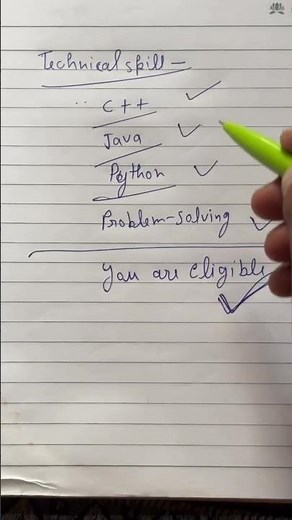 Technical skill –
C++
Java
Python
Problem-solving
You are eligible